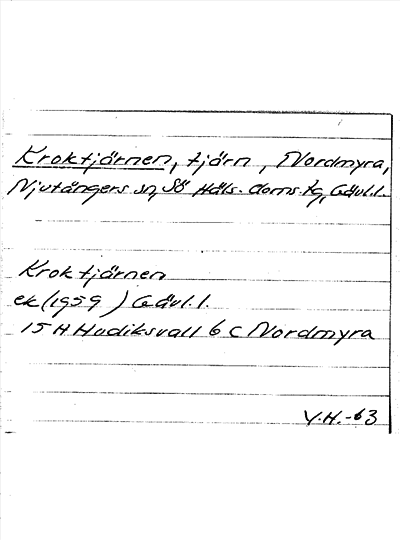 Kroktjärnen, tjärn, Nordmyra,
Njutångers sn, Sö Häls. doms.tg, Gävl.l.
Kroktjärnen
ek(1959 ) Gävl.l.
15 H Hudiksvall 6 C Nordmyra
Y.H.-63